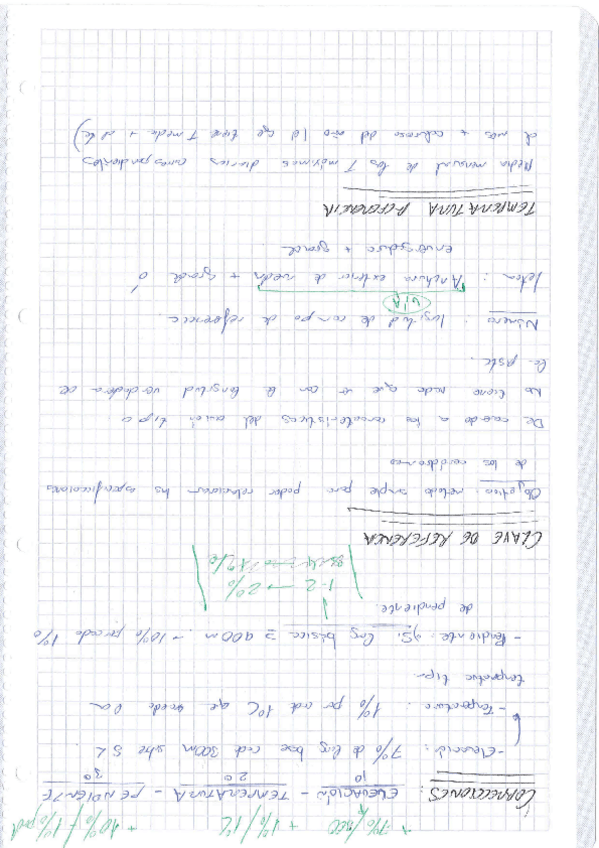 + 7%/300 + 1%/1ºC + 10%/1% pend
CORRECCIONES: ELEVACIÓN - TEMPERATURA - PENDIENTE
1º 2º 3º
- Elevación: 7% de long base cada 300m sobre S.L
- Temperatura: 1% por cada 1ºC que excede la
temperatura tipo
- Pendiente: Si long básica ≥ 900m → 10% por cada 1%
de pendiente.
1-2 → 2%
CLAVE DE REFERENCIA
Objetivo: método simple para poder relacionar las especificaciones
de los aeródromos
De acuerdo a las características del avión tipo
No tiene nada que ver con la longitud verdadera de
la pista.
Número: longitud de campo de referencia
VIA
Letra: Anchura exterior de ruedas + grande ó
envergadura + grande
TEMPERATURA REFERENCIA
Media mensual de las T máximas diarias correspondientes
al mes + caluroso del año (el que tiene T media + alta)